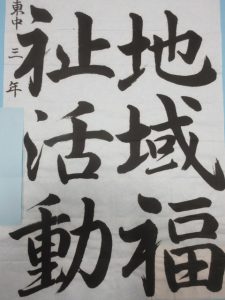 地域福
祉活動
東中三年